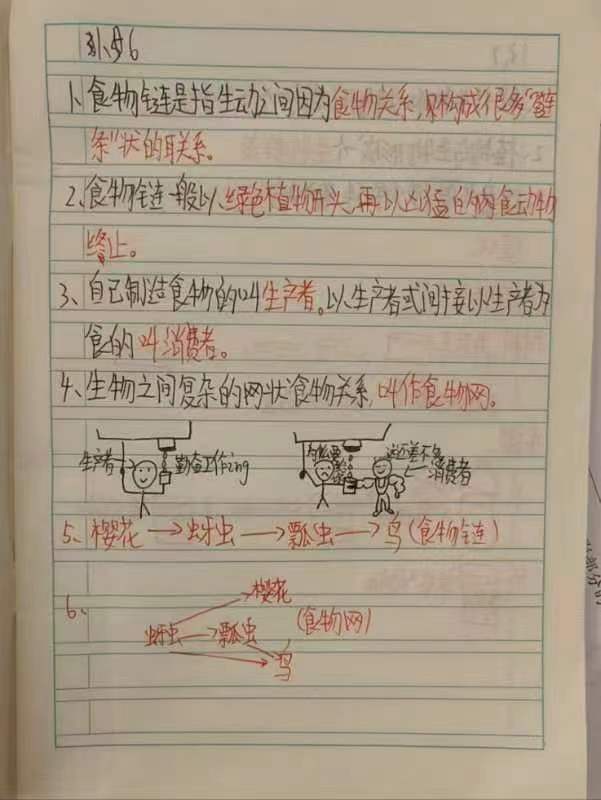 1、食物链是指生动之间因为食物关系,构成很多"链
条"状的联系。
2、食物链一般以绿色植物开头,再以凶猛的肉食动物
终止。
3、自己制造食物的叫生产者。以生产者或间接以生产者为
食的叫消费者。
4、生物之间复杂的网状食物关系,叫作食物网。
生产者 勤奋工作ing
还差不多
消费者
5、樱花→蚜虫→瓢虫→鸟(食物链)
6、
樱花
蚜虫→瓢虫 (食物网)
鸟